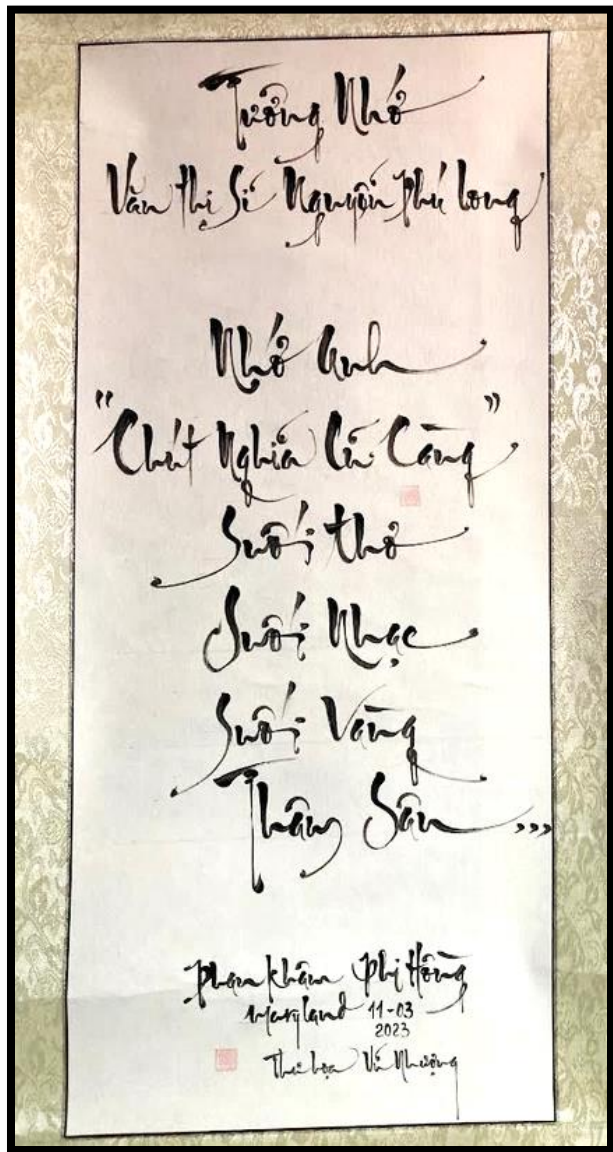 Tưởng Nhớ
Văn thi Sĩ Nguyễn Phú Long
Nhớ Anh
"Chút Nghĩa Cũ Càng"
Suối thơ
Suối Nhạc
Suối Vàng
Thâm Sâu...
Phan Khâm Phị Hồng
Maryland 11-03
2023
Thư họa Vũ Nhượng